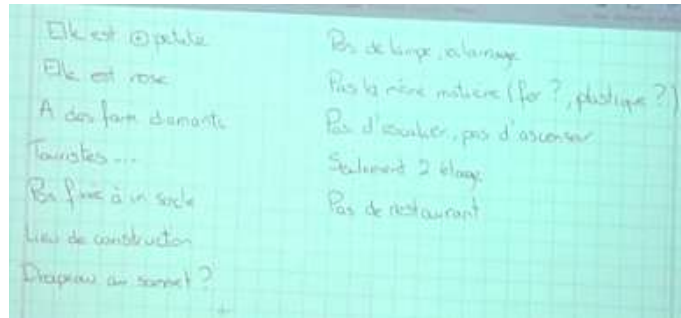 Elle est ⊕ petite
Elle est rose
A des faux diamants
Touristes ...
Pas fixé à un socle
Lieu de construction
Drapeau au sommet ?
Pas de lampe, éclairage
Pas la même matière (fer ?, plastique ?)
Pas d'escalier, pas d'ascenseur
Seulement 2 étage
Pas de restaurant